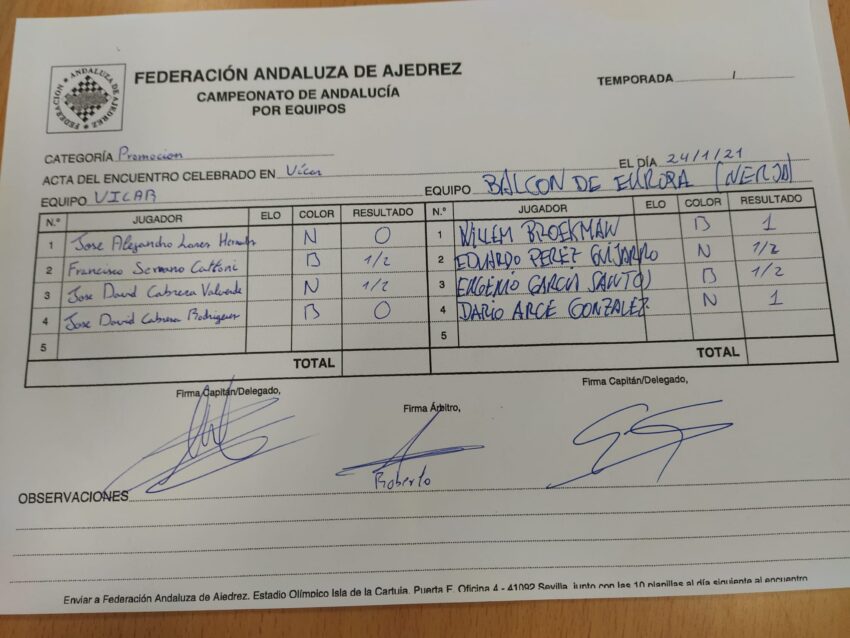 FEDERACIÓN ANDALUZA DE AJEDREZ
FEDERACIÓN ANDALUZA DE AJEDREZ
CAMPEONATO DE ANDALUCÍA
POR EQUIPOS
TEMPORADA /
CATEGORÍA Promocion
ACTA DEL ENCUENTRO CELEBRADO EN Vícar EL DÍA 24/1/21
EQUIPO VICAR EQUIPO BALCON DE EUROPA (NERJA)
N.º JUGADOR ELO COLOR RESULTADO N.º JUGADOR ELO COLOR RESULTADO
1 Jose Alejandro N 0 1 WILLEM BROEKMAN B 1
2 Francisco Serrano B 1/2 2 EDUARDO PEREZ GUIJARRO N 1/2
3 Jose David Cabrera Valverde N 1/2 3 GARCIA SANTOS B 1/2
4 Jose David Cabrera Rodriguez B 0 4 DARIO ARCE GONZALEZ N 1
5 5
TOTAL TOTAL
Firma Capitán/Delegado, Firma Árbitro, Firma Capitán/Delegado,
Roberto
OBSERVACIONES
Enviar a Federación Andaluza de Ajedrez. Estadio Olímpico Isla de la Cartuja. Puerta F. Oficina 4 - 41092 Sevilla, junto con las 10 planillas al día siguiente al encuentro